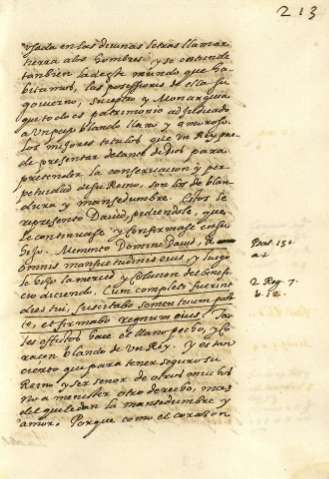 213
usada en las divinas letras llamar
tierra a los hombres, y se entiende
tambien la de este mundo que ha-
bitamos, las possessiones de ella su
govierno, su cetro y Monarquia
que todo es patrimonio adjudicado
a Un pecho blando llano y amoroso.
Los mejores titulos que un Rey pue-
de presentar delante de Dios para
pretender la conservacion y per-
petuidad de su Reino, son los de blan-
dura y mansedumbre. Estos le
represento David, pidiendole, que
le continuase y confirmase en su
hijo. Memento Domine David, &
omnis mansuetudinis eius, y luego
le hizo la merced y
cio diciendo. Cum completi fuerint
dies tui, suscitabo semen tuum post
te, et firmabo regnum eius. Ta-
les efectos hace el llano pecho, y co-
razon blando de un Rey. Y es tan
cierto que para tener seguro su
Reino y ser señor de otros muchos
no a menester otro derecho, mas
del que le dan la mansedumbre y
amor. Porque como el corazon
Psal. 131.
a. 1
2. Reg. 7.
b. 12.